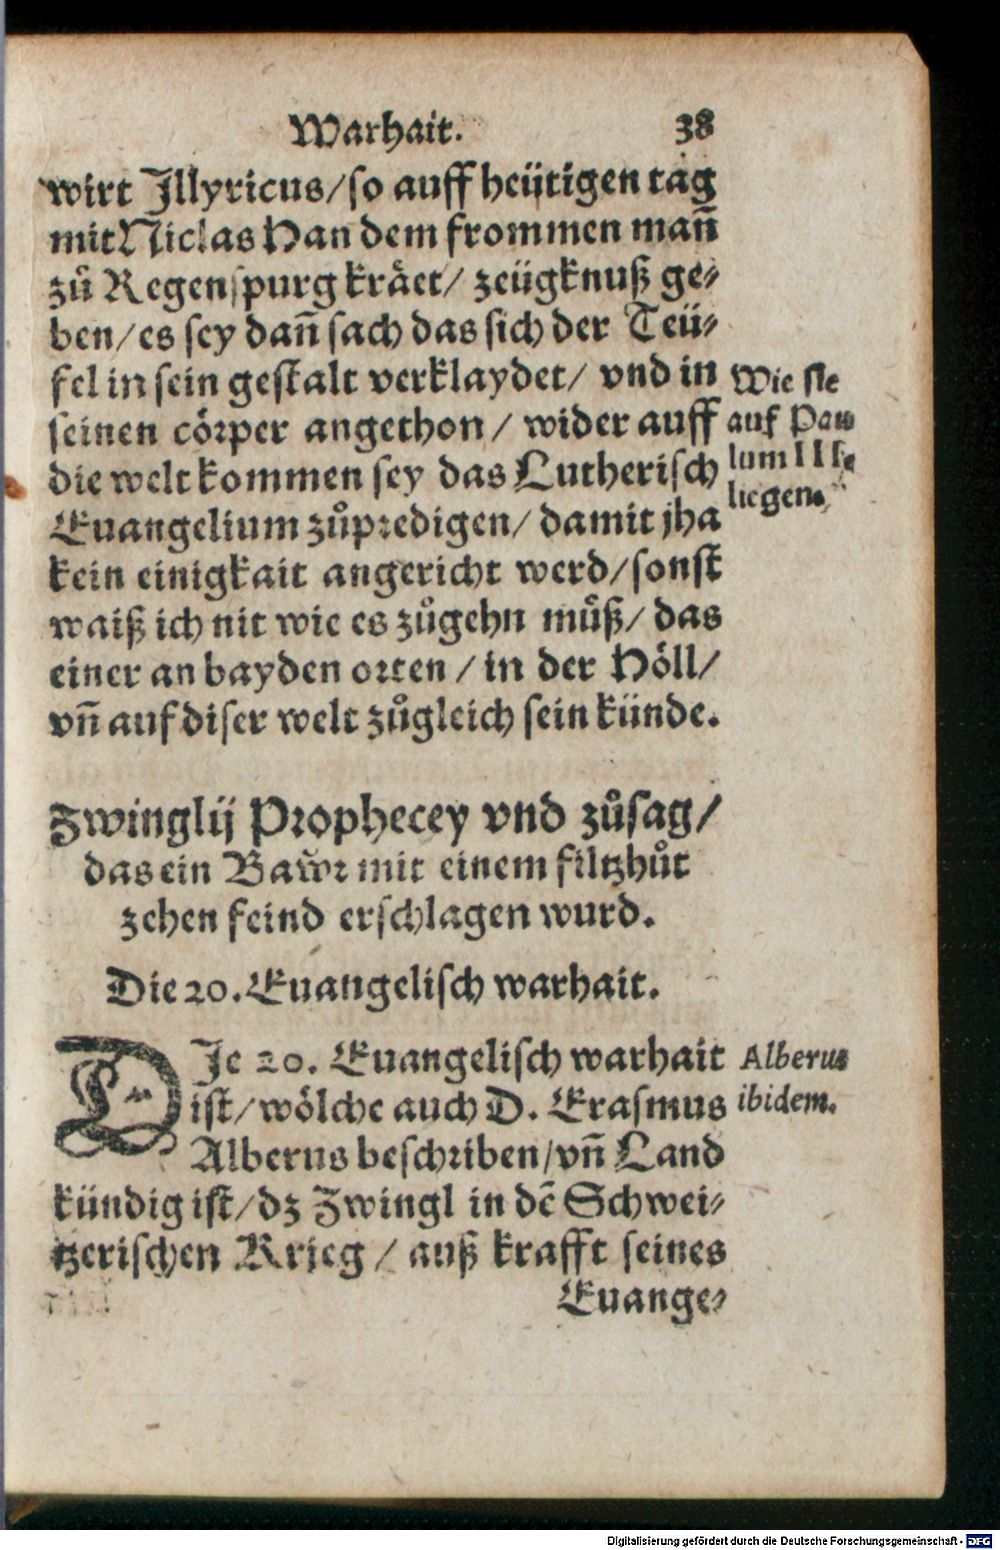 Warhait. 38
wirt Illyricus/so auff heütigen tag
mit Niclas Han dem frommen man̄
zů Regenspurg kräet/ zeügknuß ge⸗
ben/es sey dan̄ sach das sich der Teü⸗
fel in sein gestalt verklaydet/ vnd in
seinen cörper angethon/ wider auff
die welt kommen sey das Lutherisch
Euangelium zůpredigen/ damit jha
kein einigkait angericht werd/sonst
waiß ich nit wie es zůgehn můß/ das
einer an bayden orten/ in der Höll/
vn̄ auf diser welt zůgleich sein künde.
Wie sie
auf Pau
lum III.
liegen.
Zwinglij Prophecey vnd zůsag/
das ein Bawr mit einem filtzhůt
zehen feind erschlagen wurd.
Die 20. Euangelisch warhait.
DIe 20. Euangelisch warhait
ist/wölche auch D. Erasmus
Alberus beschriben/vn̄ Land
kündig ist/dz Zwingl in dē Schwei⸗
tzerischen Krieg/ auß krafft seines
Euange⸗
Alberus
ibidem.
Digitalisierung gefördert durch die Deutsche Forschungsgemeinschaft - DFG